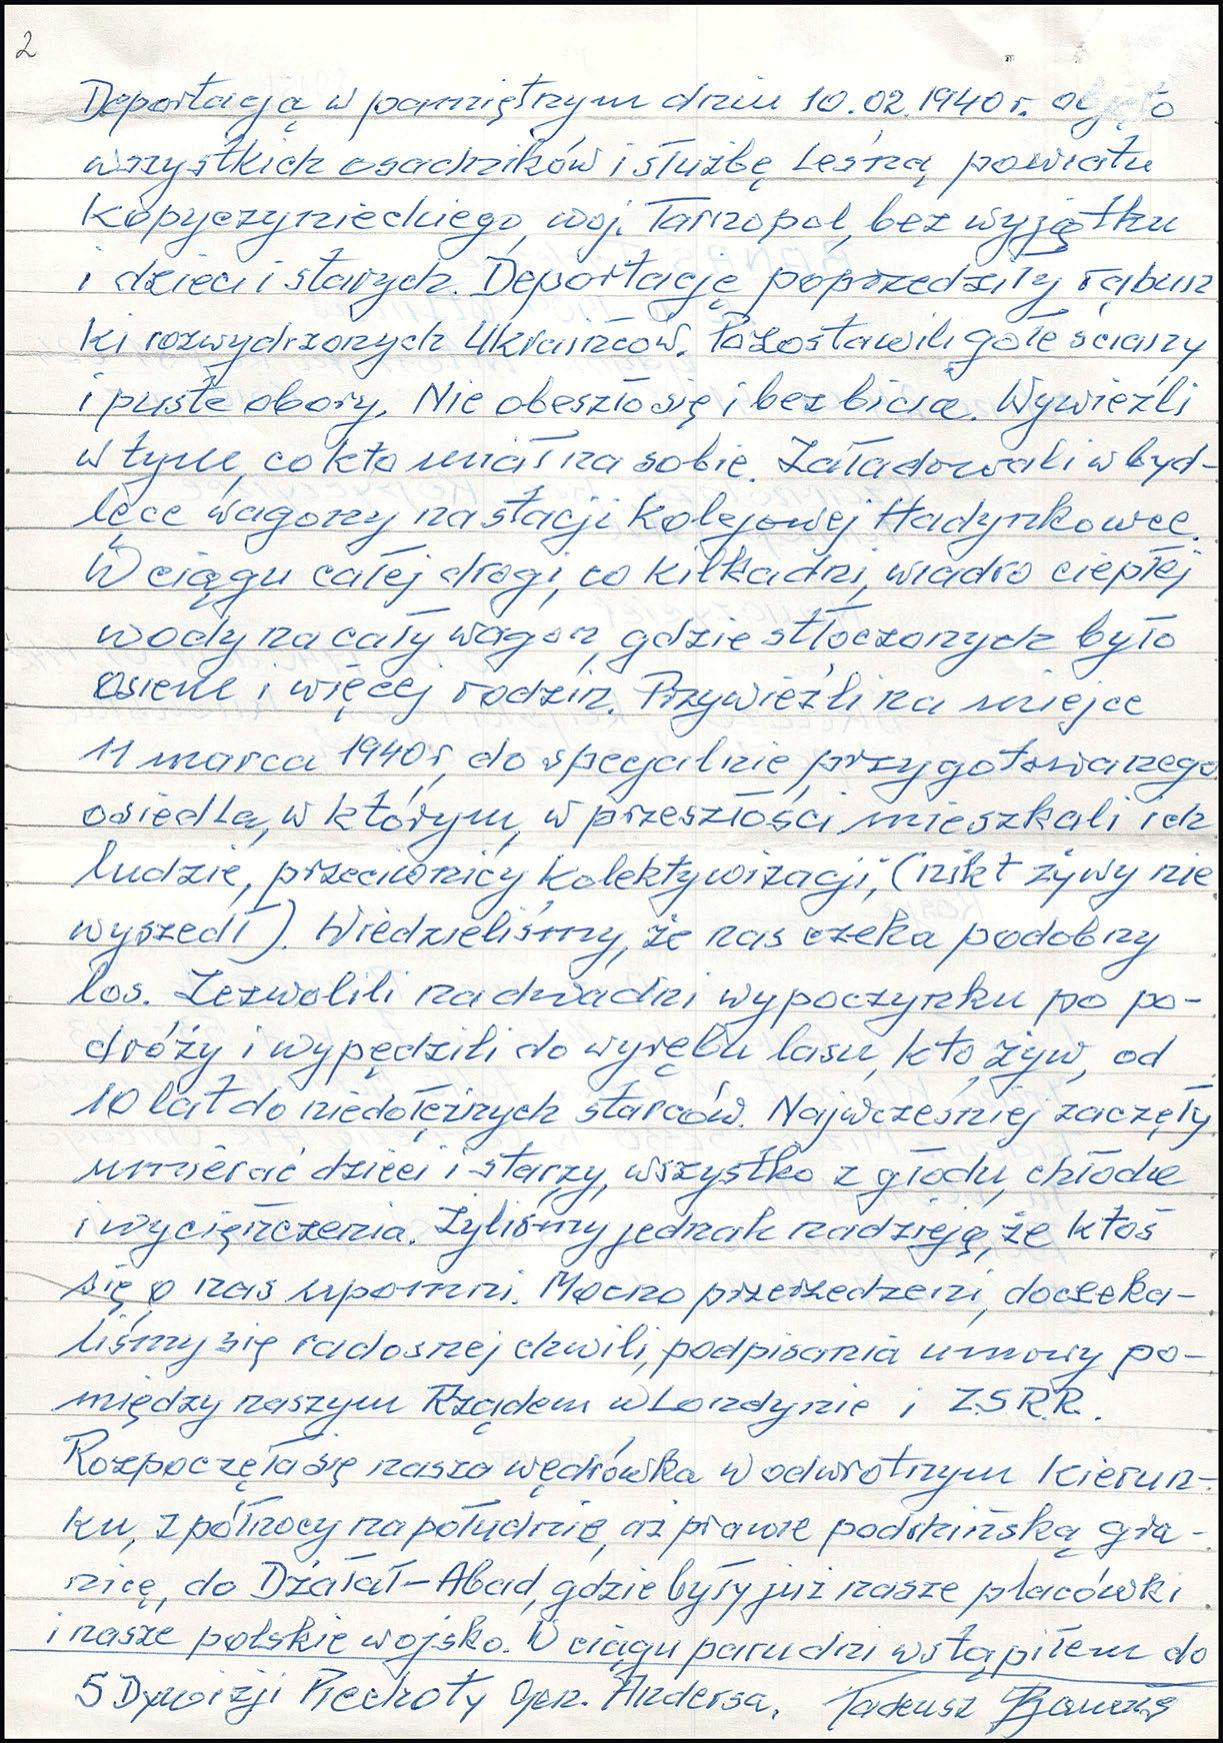 2
Deportacją w pamiętnym dniu 10.02.1940 r. objęto
wszystkich osadników i służbę Leśną powiatu
Kopyczynieckiego, woj. Tarnopol, bez wyjątku
i dzieci i starych. Deportację poprzedziły rabun
ki rozwydrzonych Ukraińców. Pozostawili gołe ściany
i puste obory. Nie obeszło się i bez bicia. Wywieźli
w tym, co kto miał na sobie. Załadowali w byd-
lęce wagony na stacji Kolejowej Hadynkowce.
W ciągu całej drogi, co kilka dni, wiadro ciepłej
wody na cały wagon, gdzie stłoczonych było
osiem i więcej rodzin. Przywieźli na miejce
11 marca 1940 r, do specjalnie przygotowanego
osiedla, w którym, w przeszłości mieszkali ich
ludzie, przeciwnicy Kolektywizacji, (nikt żywy nie
wyszedł). Wiedzieliśmy, że nas czeka podobny
los. Zezwolili na dwa dni wypoczynku po po-
dróży i wypędzili do wyrębu lasu, kto żyw, od
10 lat do niedołężnych starców. Najwcześniej zaczęły
umierać dzieci i starzy, wszystko z głodu, chłodu
i wycięńczenia. Żyliśmy jednak nadzieją, że ktoś
się o nas upomni. Mocno przerzedzeni, doczeka-
liśmy się radosnej chwili, podpisania umowy po-
między naszym Rządem w Londynie i Z.S.R.R.
Rozpoczęła się nasza wędrówka w odwrotnym kierun-
ku, z północy na południe, aż prawie pod chińską gra-
nicę, do Dżałał-Abad, gdzie były już nasze placówki
i nasze polskie wojsko. W ciągu paru dni wstąpiłem do
5 Dywizji Piechoty Gen. Andersa. Tadeusz